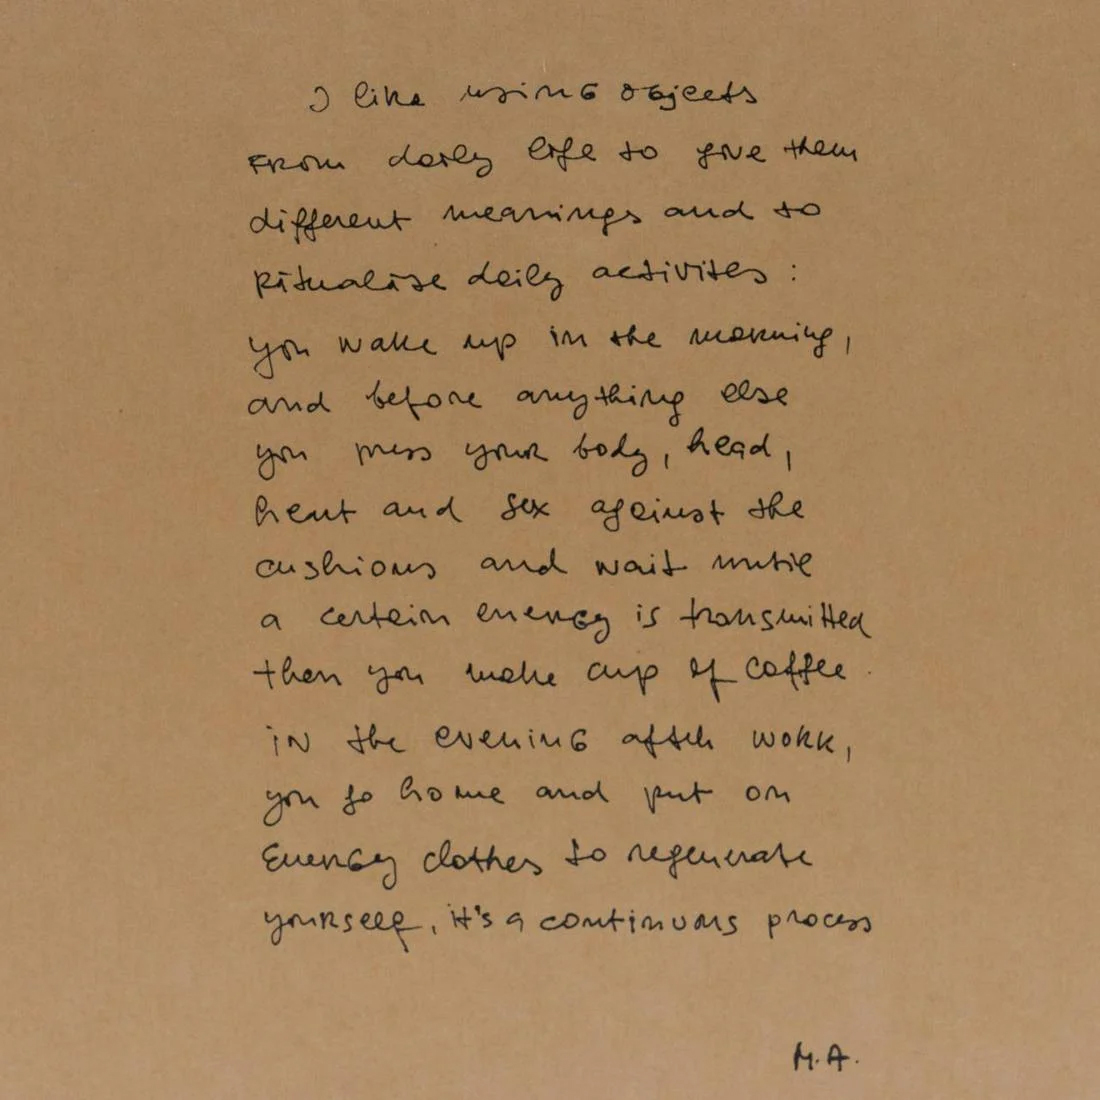 I like using objects
From daily life to give them
different meanings and to
Ritualise daily activites:
you wake up in the morning,
and before anything else
you press your body, head,
heart and sex against the
cushions and wait until
a certain energy is transmitted
then you make cup of coffee.
in the evening after work,
you go home and put on
Energy clothes to regenerate
yourself, it's a continuous process
M.A.